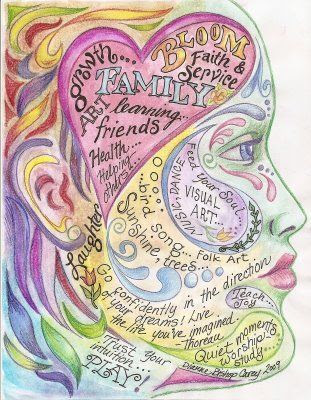 Growth...
BLOOM
Faith &
Service
FAMILY
ART
learning...
friends
Health...
Helping
Others...
Laughter
Feed your Soul...
VISUAL
ART...
MUSIC, DANCE
bird song...
Sunshine,
trees...
Folk Art
Go confidently in the direction
of your dreams! Live
the life you've imagined.
Thoreau
Teach...
Joy
Trust your
intuition...
PLAY!
Quiet moments
worship...
study...
Dianne Bishop Carey 2009